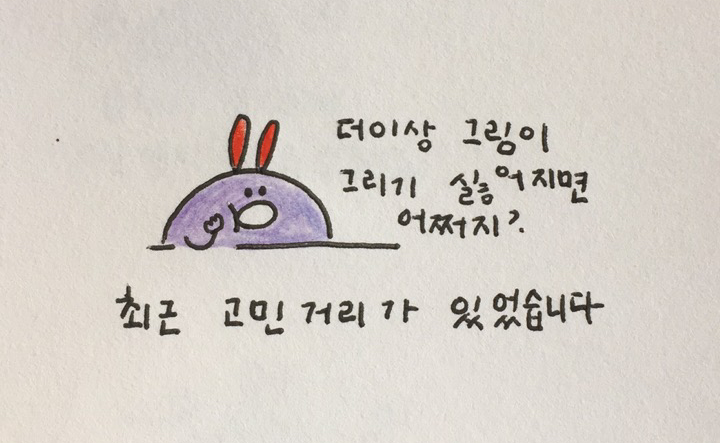 더이상 그림이
그리기 싫음어지면
어쩌지?
최근 고민거리가 있었습니다